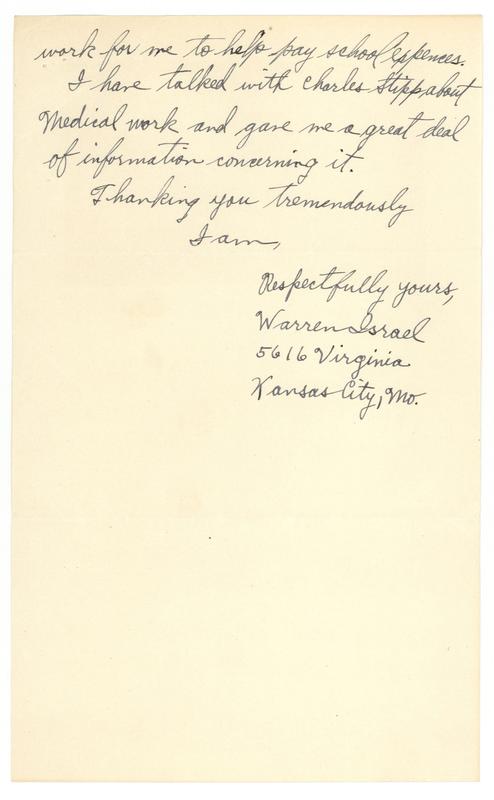 work for me to help pay school expences.
I have talked with Charles Stipp about
Medical work and gave me a great deal
of information concerning it.
Thanking you tremendously
I am,
Respectfully yours,
Warren Israel
5616 Virginia
Kansas City, Mo.